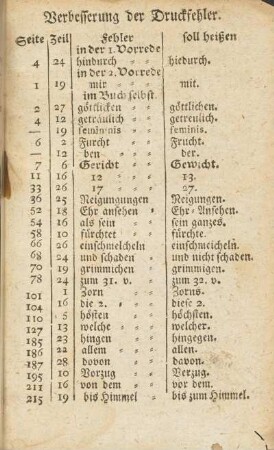 Verbesserung der Druckfehler.
Seite Zeil Fehler soll heißen
in der 1. Vorrede
4 24 hindurch = = hiedurch.
in der 2. Vorrede
1 19 mir = = mit.
im Buch selbst.
2 27 göttlicken = = göttlichen.
4 12 getraülich = = getreulich.
— 19 seminnis = = seminis.
6 2 Furcht = = Frucht.
— 12 den = = der.
7 6 Gericht = = Gewicht.
11 16 12 = = 13.
33 26 17 = = 27.
36 25 Neigungungen = Neigungen.
52 18 Ehr ansehen = Ehr-Ansehen.
54 16 als sein = = sein ganzes.
58 10 fürchtet = = fürchte.
66 26 einschmelcheln einschmeicheln.
68 24 und schaden = und nicht schaden.
70 19 grimmichen = grimmigen.
78 24 zum 31. v. = zum 32. v.
101 1 Zorn = = Zorns.
104 16 die 2. = = diese 2.
110 5 hösten = = höchsten.
127 13 welche = = welcher.
185 23 hingen = = hingegen.
186 22 allem = = allen.
187 28 dovon = = davon.
195 10 Vorzug = = Verzug.
211 16 von dem = = vor dem.
215 19 bis Himmel = = bis zum Himmel.